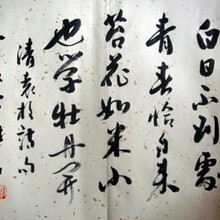 白日不到處
青春恰自來
苔花如米小
也学牡丹开
清袁枚詩句